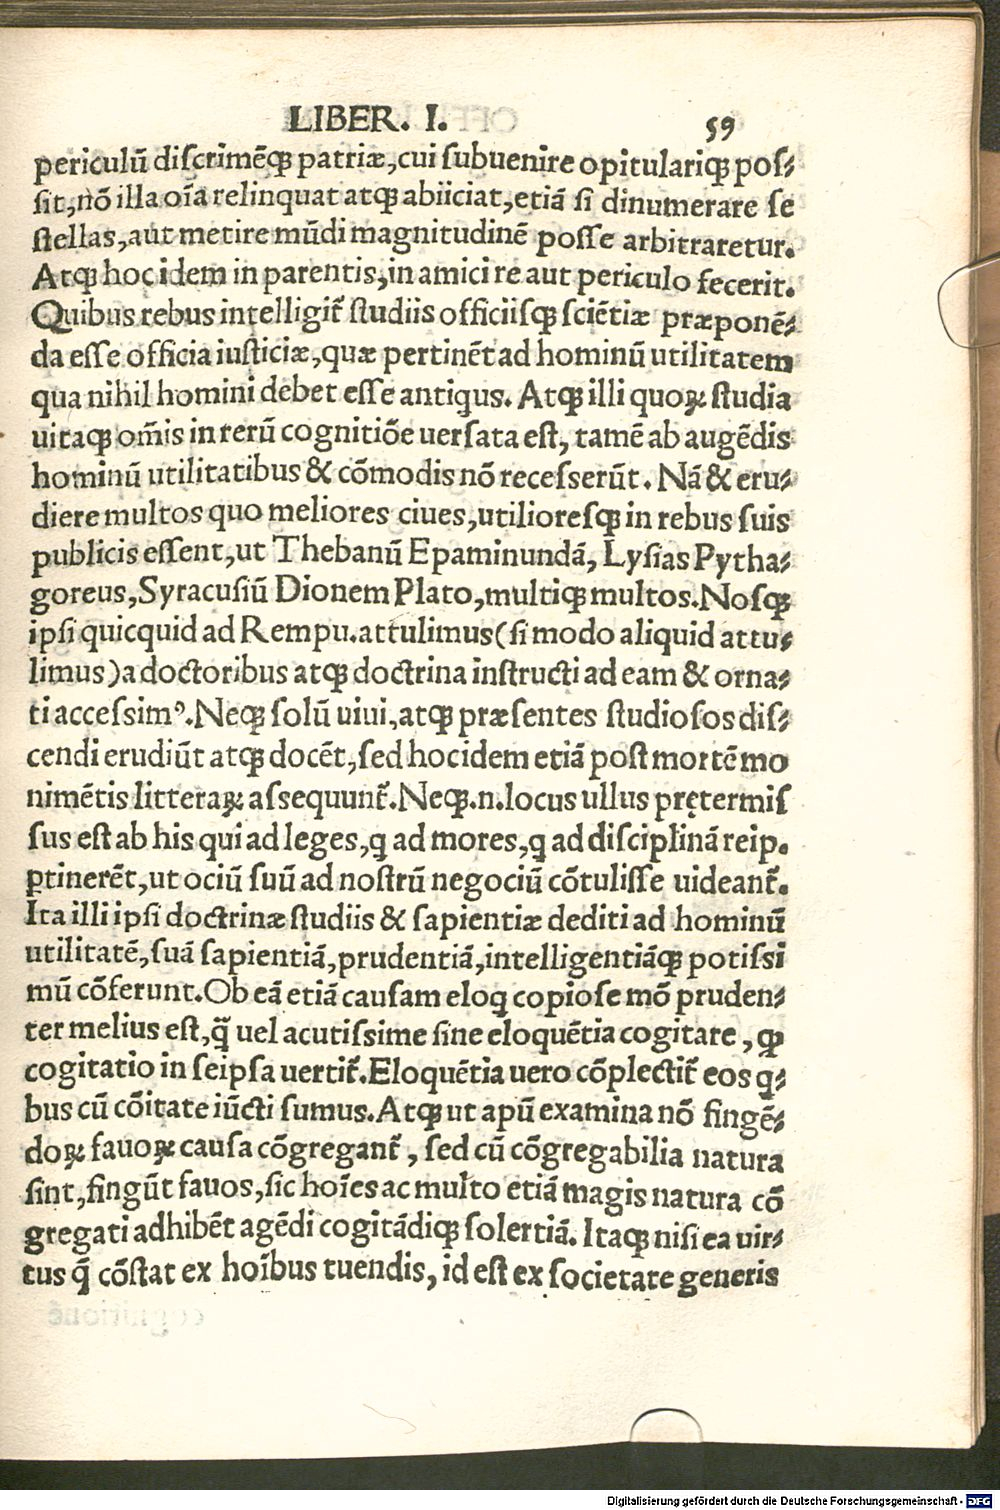 LIBER. I. 59
periculū diſcrimēqꝫ patriæ, cui ſubuenire opitulariqꝫ poſ-
ſit, nō illa oīa relinquat atqꝫ abiiciat, etiā ſi dinumerare ſe
ſtellas, aut metire mūdi magnitudinē poſſe arbitraretur.
Atqꝫ hoc idem in parentis, in amici re aut periculo fecerit.
Quibus rebus intelligit̃ ſtudiis officiiſqꝫ ſciētiæ præponē-
da eſſe officia iuſticiæ, quæ pertinēt ad hominū utilitatem
qua nihil homini debet eſſe antiqus. Atqꝫ illi quoꝝ ſtudia
uitaqꝫ om̄is in rerū cognitiōe uerſata eſt, tamē ab augēdis
hominū utilitatibus & cōmodis nō receſſerūt. Nā & eru-
diere multos quo meliores ciues, utilioreſqꝫ in rebus ſuis
publicis eſſent, ut Thebanū Epaminundā, Lyſias Pytha-
goreus, Syracuſiū Dionem Plato, multiqꝫ multos. Noſqꝫ
ipſi quicquid ad Rempu. attulimus (ſi modo aliquid attu-
limus) a doctoribus atqꝫ doctrina inſtructi ad eam & orna-
ti acceſſimꝰ. Neqꝫ ſolū uiui, atqꝫ præſentes ſtudioſos diſ-
cendi erudiūt atqꝫ docēt, ſed hoc idem etiā poſt mortē mo
nimētis litteraꝝ aſſequunt̃. Neqꝫ .n. locus ullus prętermiſ
ſus eſt ab his qui ad leges, q̨ ad mores, q̨ ad diſciplinā reip.
ꝑtinerēt, ut ociū ſuū ad noſtrū negociū cōtuliſſe uideant̃.
Ita illi ipſi doctrinæ ſtudiis & ſapientiæ dediti ad hominū
utilitatē, ſuā ſapientiā, prudentiā, intelligentiāqꝫ potiſſi
mū cōferunt. Ob eā etiā cauſam eloq̨ copioſe mō pruden-
ter melius eſt, q̄̃ uel acutiſſime ſine eloquētia cogitare, qꝫ
cogitatio in ſeipſa uertit̃. Eloquētia uero cōplectit̃ eos q̨-
bus cū cōitate iūcti ſumus. Atqꝫ ut apū examina nō fingē-
doꝝ fauoꝝ cauſa cōgregant̃, ſed cū cōgregabilia natura
ſint, fingūt fauos, ſic hoīes ac multo etiā magis natura cō
gregati adhibēt agēdi cogitādiqꝫ ſolertiā. Itaqꝫ niſi ea uir-
tus q̄ cōſtat ex hoībus tuendis, id eſt ex ſocietate generis
Digitalisierung gefördert durch die Deutsche Forschungsgemeinschaft - DFG